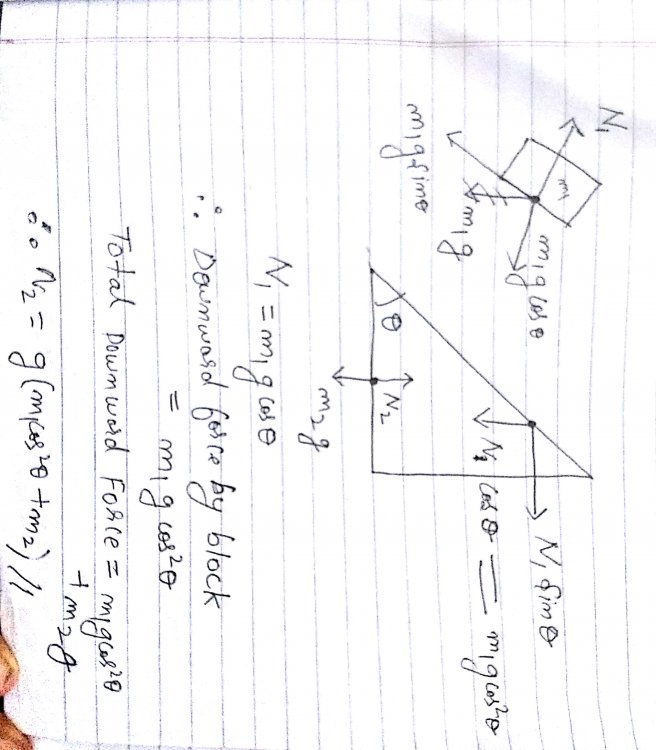 N₁
m₁
m₁g cosθ
m₁g sinθ
m₁g
θ
N₁ sinθ
N₁ cosθ = m₁g cos²θ
N₂
m₂g
N₁ = m₁g cosθ
∴ Downward force by block
= m₁g cos²θ
Total Downward Force = m₁g cos²θ
+ m₂g
∴ N₂ = g(m₁cos²θ + m₂) //